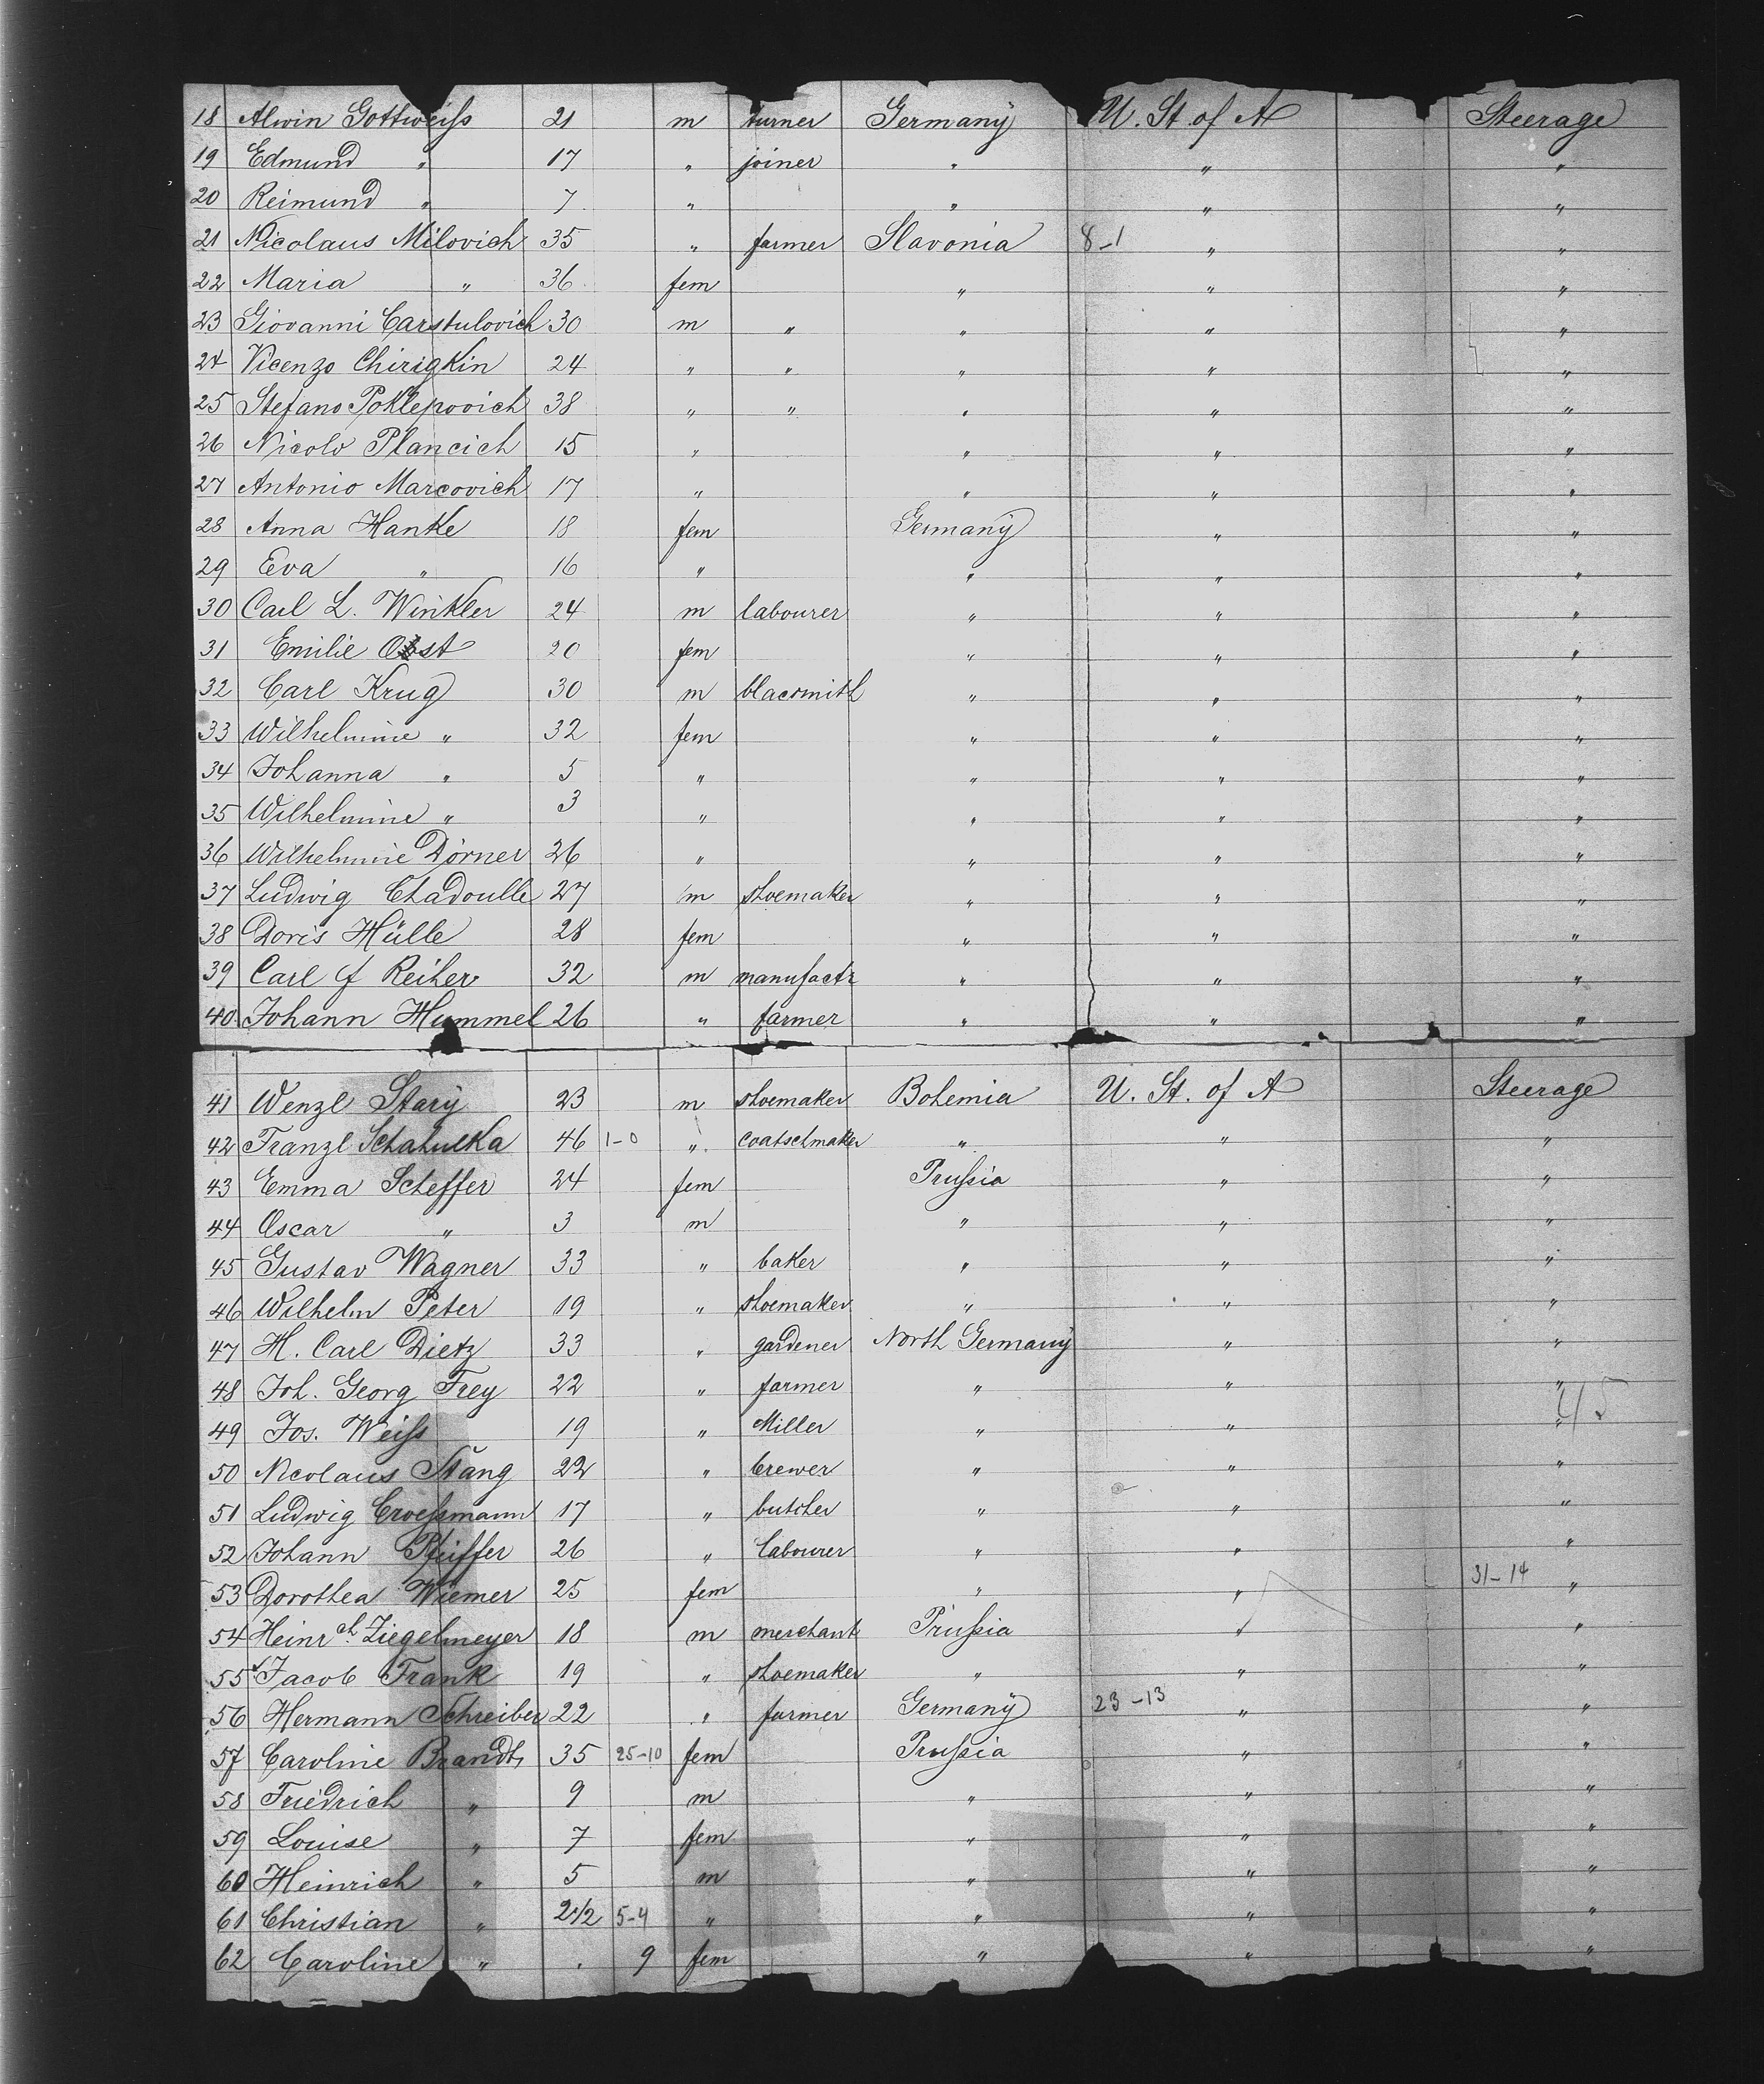 18 Alwin Gottweiss 21 m turner Germany U. St. of A Steerage
19 Edmund " 17 " joiner " " "
20 Reimund " 7 " " " "
21 Nicolaus Milovich 35 " farmer Slavonia 8-1 " "
22 Maria " 36 fem " " "
23 Giovanni Carstulovich 30 m " " " "
24 Vicenzo Chirigkin 24 " " " " "
25 Stefano Poklepovich 38 " " " " "
26 Nicolo Plancich 15 " " " "
27 Antonio Marcovich 17 " " " "
28 Anna Hanke 18 fem Germany " "
29 Eva " 16 " " " "
30 Carl L. Winkler 24 m labourer " " "
31 Emilie Obst 20 fem " " "
32 Carl Krug 30 m blacsmith " " "
33 Wilhelmine " 32 fem " " "
34 Johanna " 5 " " " "
35 Wilhelmine " 3 " " " "
36 Wilhelmine Dörner 26 " " " "
37 Ludwig Chadoulle 27 m shoemaker " " "
38 Doris Hülle 28 fem " " "
39 Carl Reiher 32 m manufactr " " "
40 Johann Hummel 26 " farmer " " "
41 Wenzl Stary 23 m shoemaker Bohemia U. St. of A Steerage
42 Franzl Schahulka 46 1-0 " coatschmaker " " "
43 Emma Scheffer 24 fem Prussia " "
44 Oscar " 3 m " " "
45 Gustav Wagner 33 " baker " " "
46 Wilhelm Peter 19 " shoemaker " " "
47 H. Carl Dietz 33 " gardener North Germany " "
48 Joh. Georg Frey 22 " farmer " " "
49 Jos. Weiss 19 " Miller " " "
50 Nicolaus Stang 22 " brewer " " "
51 Ludwig Croessmann 17 " butcher " " "
52 Johann Pfeiffer 26 " labourer " " "
53 Dorothea Wiemer 25 fem " " 31-14 "
54 Heinrch. Ziegelmeyer 18 m merchant Prussia " "
55 Jacob Frank 19 " shoemaker " " "
56 Hermann Schreiber 22 " farmer Germany 23-13 " "
57 Caroline Brandt 35 25-10 fem Prussia " "
58 Friedrich " 9 m " " "
59 Louise " 7 fem " " "
60 Heinrich " 5 m " " "
61 Christian " 2 1/2 5-4 " " " "
62 Caroline " . 9 fem " " "